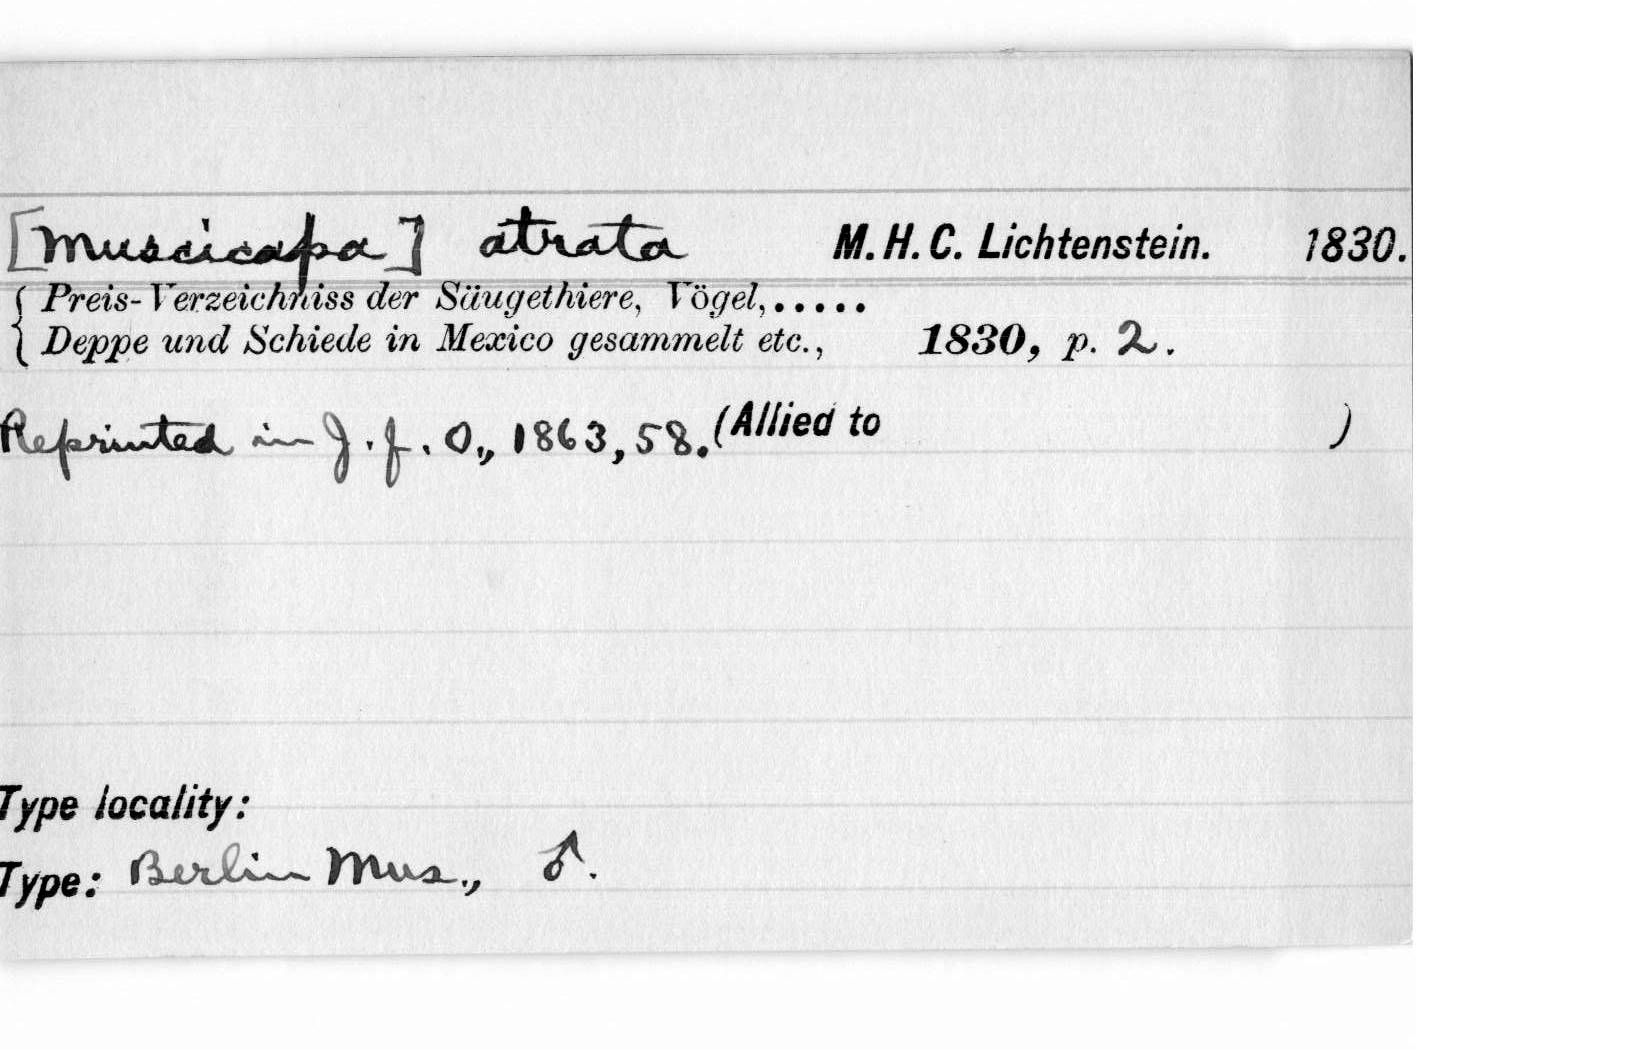 [Muscicapa] atrata M.H.C. Lichtenstein. 1830.
Preis-Verzeichniss der Säugethiere, Vögel,.....
Deppe und Schiede in Mexico gesammelt etc., 1830, p. 2.
Reprinted in J.f.O., 1863, 58. (Allied to )
Type locality:
Type: Berlin Mus., ♂.